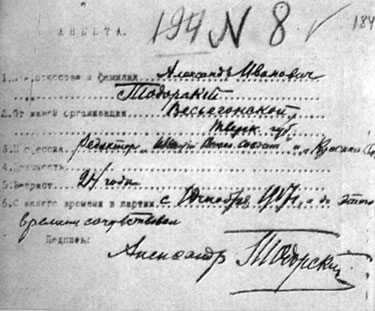 АНКЕТА 194 N 8 184
1. отчество и фамилия Александр Иванович
Тодорский
2. От какой организации Весьегонской,
Тверск. губ.
3. Профессия. Редактор „
4.
5. Возраст 24 года
6. С какого времени в партии с Октября 1917 г. а до этого
времени сочувствовал
Подпись: Александр Тодорский